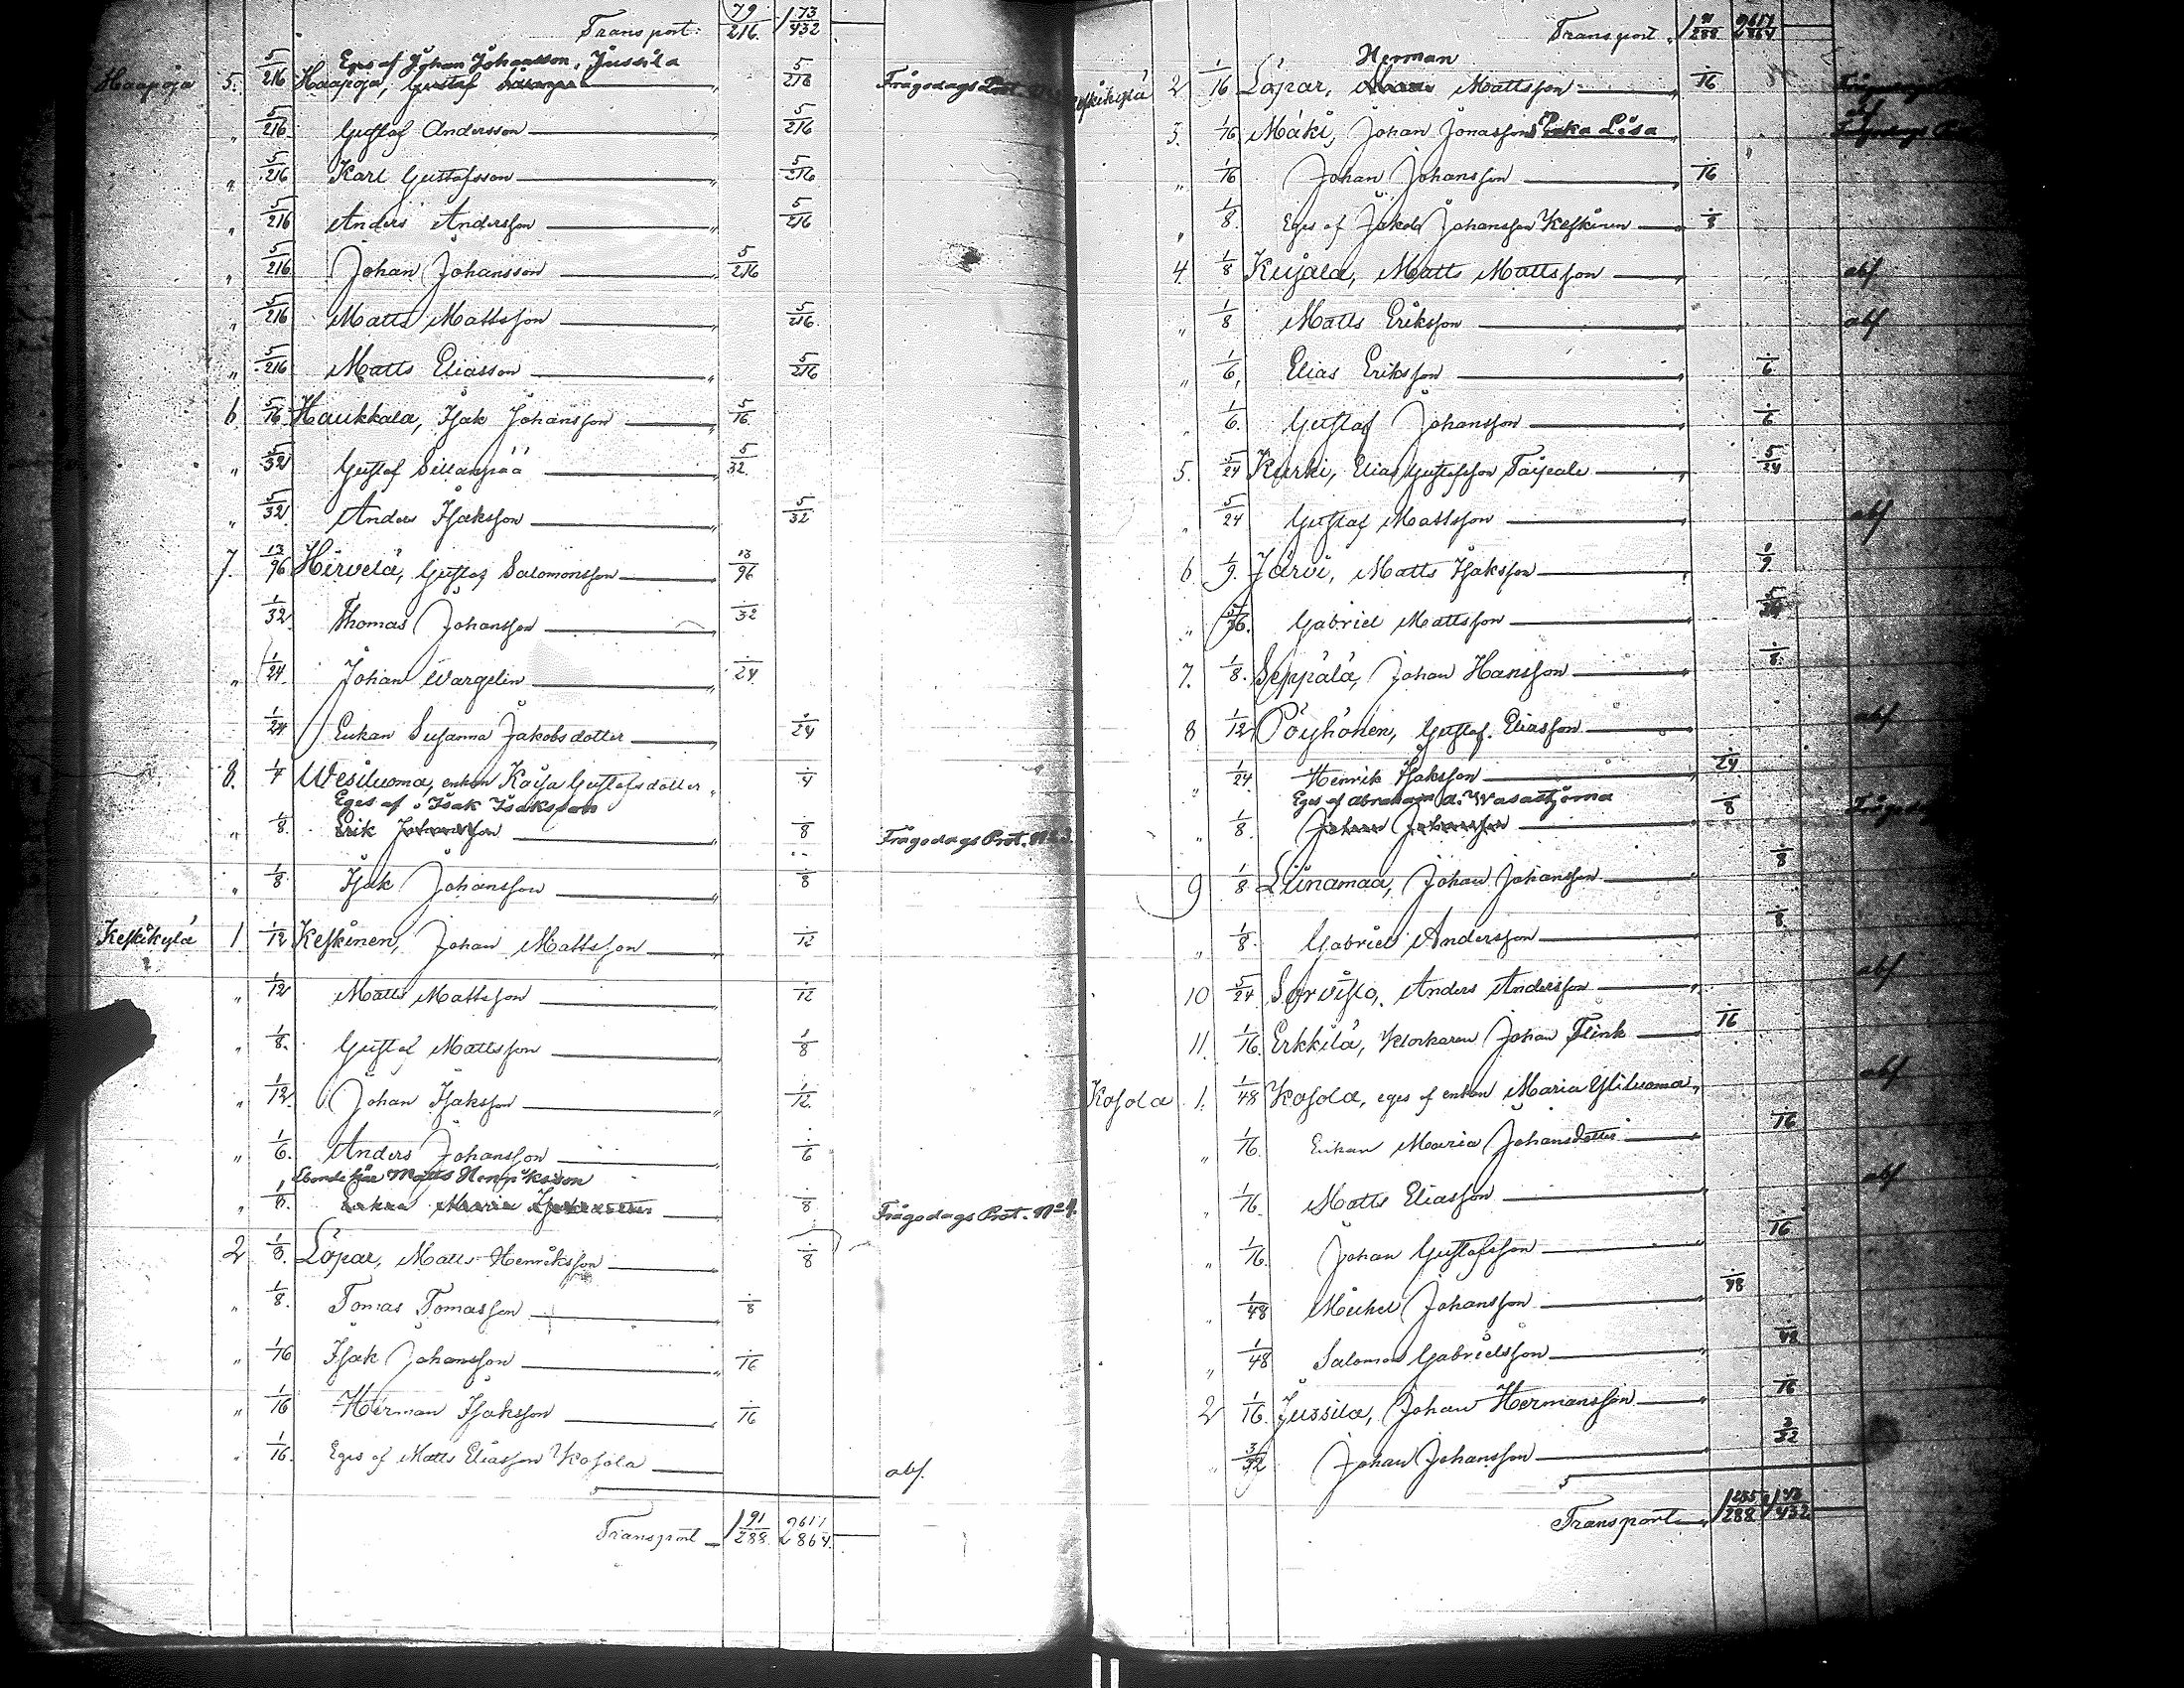 Transport. 79/216. 1 73/432
Eges af Johan Johansson, Jussila
Haapoja 5. 5/216 Haapoja, Gustaf 5/216 Frågodags Prot.
" 5/216 Gustaf Andersson 5/216
" 5/216 Karl Gustafsson " 5/216
" 5/216 Anders Andersson 5/216
" 5/216 Johan Johansson 5/216
" 5/216 Matts Mattsson " 5/216
" 5/216 Matts Eliasson " 5/216
6 5/16 Haukkala, Isak Johansson " 5/16
" 5/32 Gustaf Sillanpää " 5/32
" 5/32 Anders Isaksson " 5/32
7. 13/96 Hirvelä, Gustaf Salomonsson 13/96
1/32 Thomas Johansson " 1/32
" 1/24 Johan Wargelin " 1/24
1/24 Enkan Susanna Jakobsdotter " 1/24
8. 1/4 Wesiluoma, enkan Kajsa Gustafsdotter " 1/4
Eges af Isak Isaksson
" 1/8. Erik Johansson " 1/8 Frågodags Prot. No 3.
" 1/8 Isak Johansson " 1/8
Keskikylä 1 1/12 Keskinen, Johan Mattsson " 1/12
" 1/12 Matts Mattsson " 1/12
" 1/8. Gustaf Mattsson " 1/8
" 1/12 Johan Isaksson " 1/12.
" 1/6. Anders Johansson " 1/6
Matts Henriksson
" 1/8. Enkan Maria 1/8 Frågodags Prot. No 4.
2 1/8. Löpar, Matts Henriksson " 1/8
" 1/8. Tomas Tomasson " 1/8
" 1/16 Isak Johansson " 1/16
" 1/16 Herman Isaksson " 1/16
" 1/16. Eges af Matts Eliasson Kosola abs.
Transport 1 91/288. 2617/2864.
Transport. 1 91/288 2617/2864
Herman
Keskikylä 2 1/16 Löpar, Mattsson " 1/16
3. 1/16. Mäki, Johan Jonasson Lisa "
" 1/16 Johan Johansson " 1/16
" 1/8. Eges af Jakob Johansson Keskinen " 1/8
4. 1/8 Kujala, Matts Mattsson " abs
" 1/8 Matts Eriksson " abs
" 1/6, Elias Eriksson " 1/6
" 1/6. Gustaf Johansson " 1/6
5. 5/24 Kurki, Elias Gustafsson Taipale " 5/24
" 5/24 Gustaf Mattsson " abs
6. 1/9. Järvi, Matts Isaksson 1/9.
" 5/36. Gabriel Mattsson "
7. 1/8. Seppälä, Johan Hansson " 1/8.
8 1/12 Pöyhönen, Gustaf Eliasson " abs
" 1/24 Henrik Isaksson " 1/24.
Eges af Abraham A. Wasastjerna
" 1/8. Johan Johansson " 1/8
9 1/8 Liinamaa, Johan Johansson " 1/8
" 1/8. Gabriel Andersson " 1/8.
10 5/24 Sorvisto, Anders Andersson " abs
11. 1/16. Erkkilä, Klockaren Johan Flink 1/16
Kosola 1. 1/48 Kosola, eges af enkan Maria Yliluoma " abs
" 1/16. Enkan Maria Johansdotter " 1/16
" 1/16. Matts Eliasson " abs
" 1/16. Johan Gustafsson " 1/16
" 1/48 Michel Johansson " 1/48
" 1/48 Salomon Gabrielsson " 1/48
2 1/16. Jussila, Johan Hermansson " 1/16
" 3/32 Johan Johansson 3/32
Transport